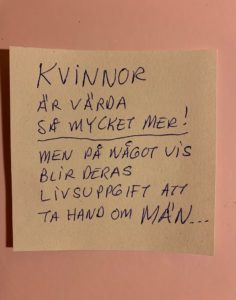 KVINNOR
ÄR VÄRDA
SÅ MYCKET MER!
MEN PÅ NÅGOT VIS
BLIR DERAS
LIVSUPPGIFT ATT
TA HAND OM MÄN...